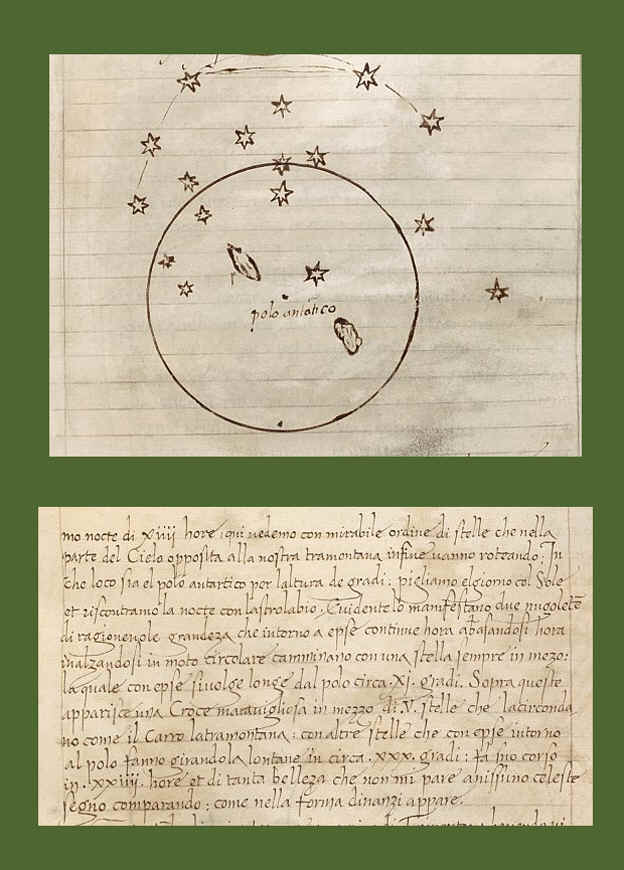 polo antātico
mo nocte di xiiij hore: qui vedemo con mirabile ordine di stelle che nella
parte del Cielo opposita alla nostra tramontana infime vanno roteando: In
che loco sia el polo antartico per laltura de gradi: pigliamo el giorno col Sole
et riscontramo la nocte con lastrolabio, Evidente lo manifestano due nugolette
di ragionevole grandeza che intorno a epse continue hora abasandosi hora
inalzandosi in moto circolare camminano con una stella sempre in mezo:
laquale con epse si volge longe dal polo circa .xj. gradi. Sopra queste
apparisce una Croce maravigliosa in mezzo di .V. stelle che lacirconda
no come il Carro latramontana: con altre stelle che con epse intorno
al polo fanno girandola lontane in circa .xxx. gradi: fa suo corso
in .xxiiij. hore et di tanta belleza che non mi pare a nissuno celeste
segno comparando: come nella forma dinanzi appare.